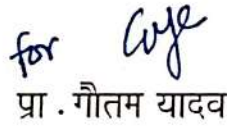 for
प्रा . गौतम यादव